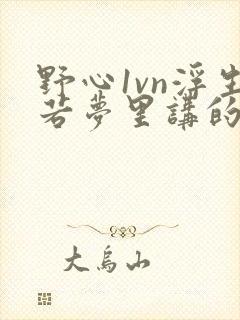 野心1vn浮生
若夢里講的
大鳥山